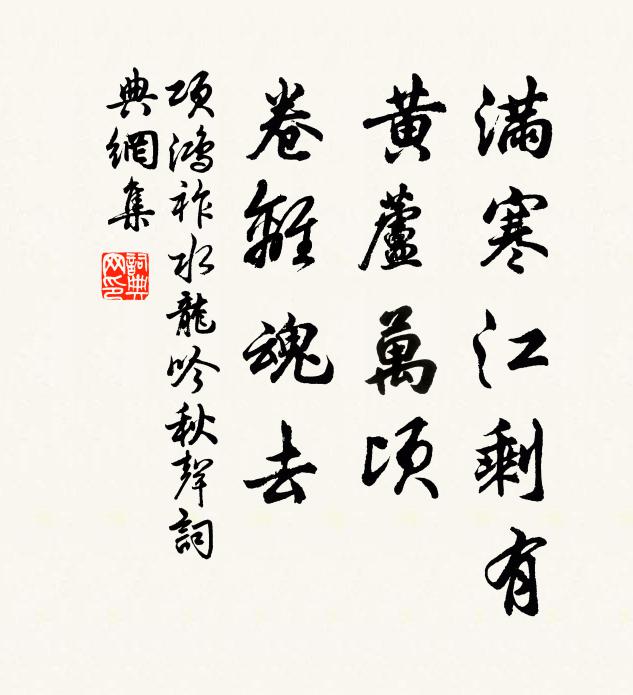 滿寒江剩有
黃蘆萬頃
卷離魂去
項鴻祚水龍吟秋聲詞
典網集
詞典网印